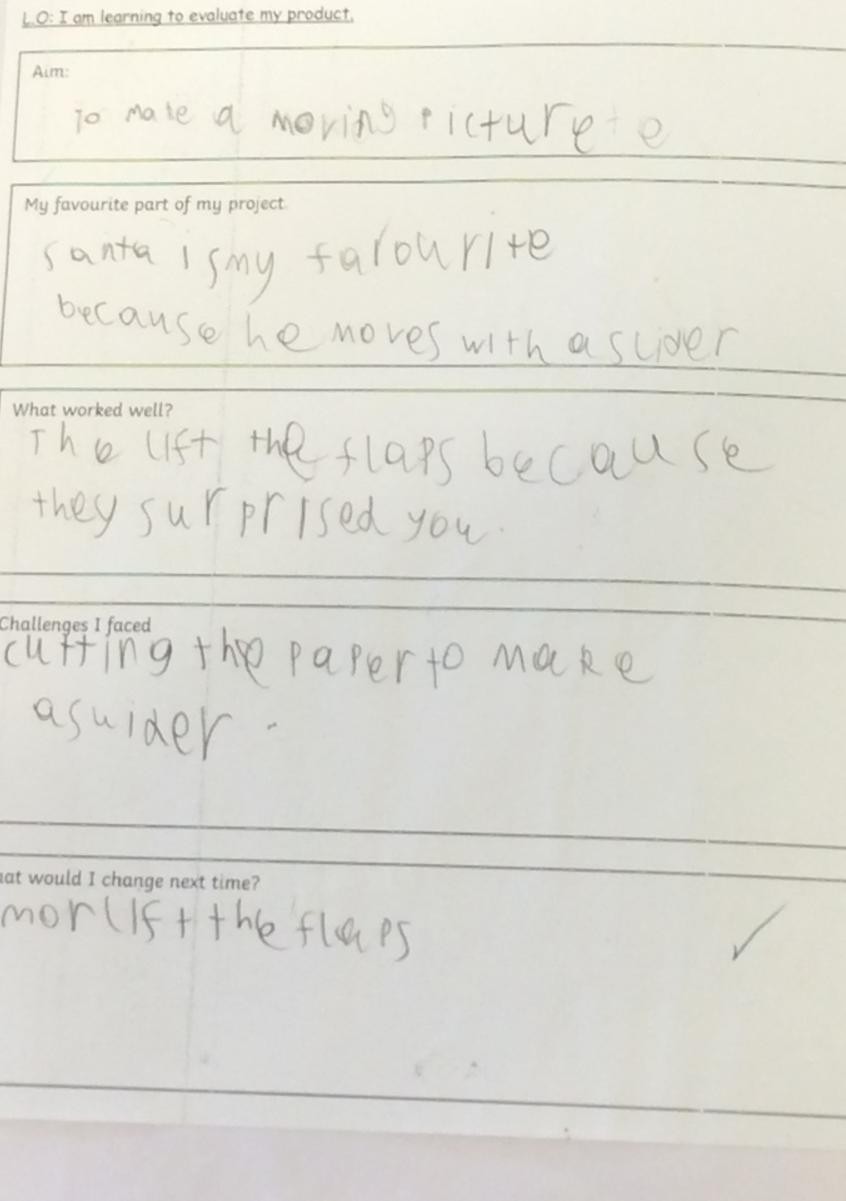 L.O: I am learning to evaluate my product.
Aim:
To make a moving picture
My favourite part of my project
santa is my favourite
because he moves with a slider
What worked well?
The lift the flaps because
they surprised you.
Challenges I faced
cutting the paper to make
a slider.
at would I change next time?
mor lift the flaps